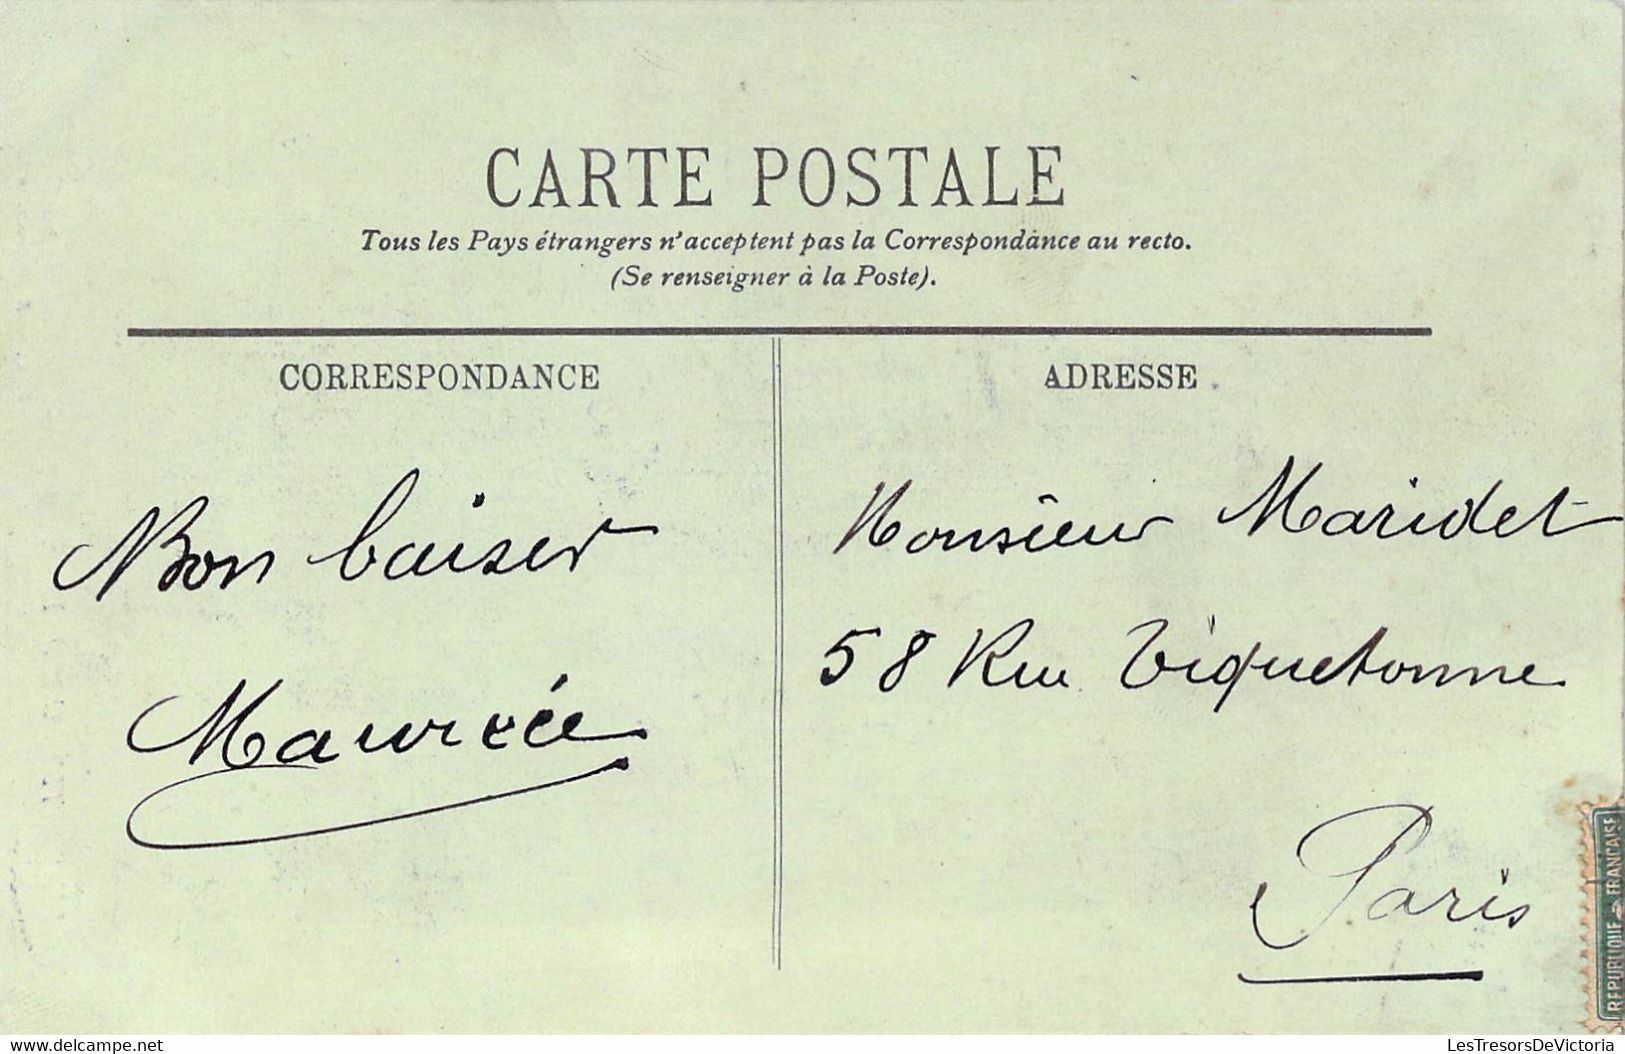 CARTE POSTALE
Tous les Pays étrangers n'acceptent pas la Correspondance au recto.
(Se renseigner à la Poste).
CORRESPONDANCE
Bon baiser
ADRESSE
Monsieur Maridet
58 Rue Tiquetonne
Paris
REPUBLIQUE FRANCAISE
LesTresorsDeVictoria
delcampe.net